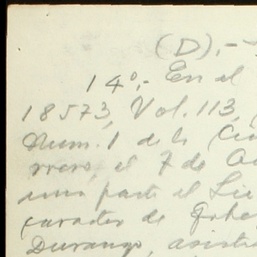 (D).-
14º.- En el
18573, Vol. 113,
Núm. 1 de la Ciu
rrero, el 7 de Oc
una parte el Lic
caracter de Gober
Durango, asisti